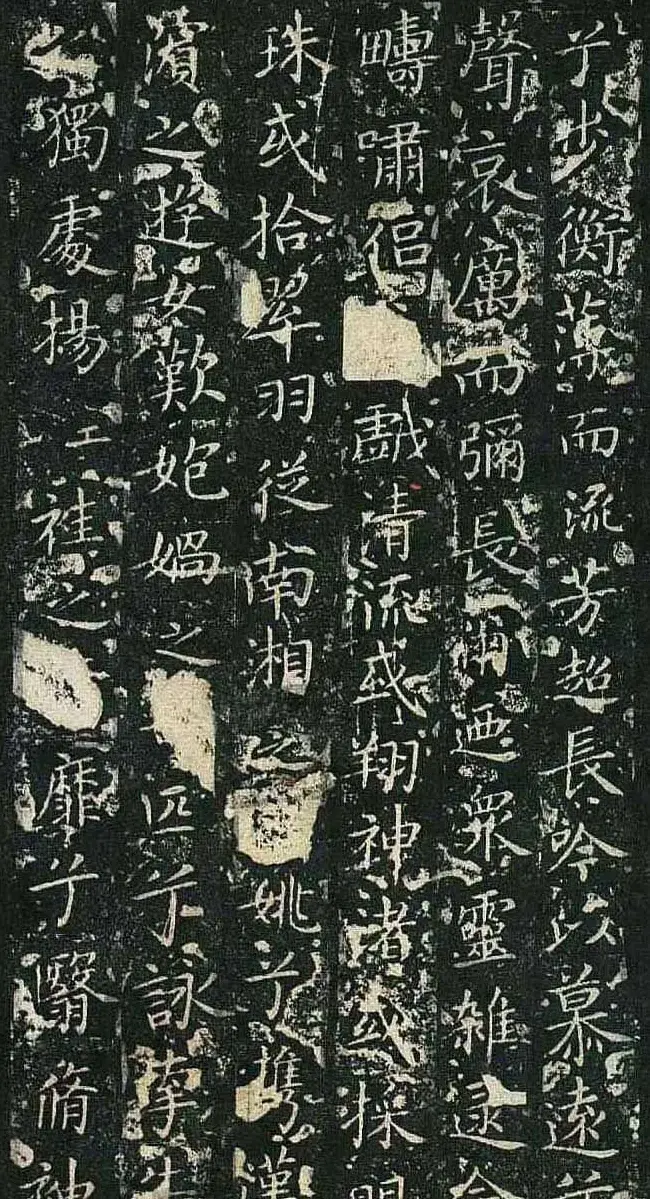 兮步衡薄而流芳超長吟以慕遠兮
聲哀厲而彌長爾迺衆靈雜遝命
疇嘯侶戲清流或翔神渚或採明
珠或拾翠羽從南湘之姚兮攜漢
濱之遊女歎㚿媧之匹兮詠牽牛
之獨處揚袿之靡兮翳脩神